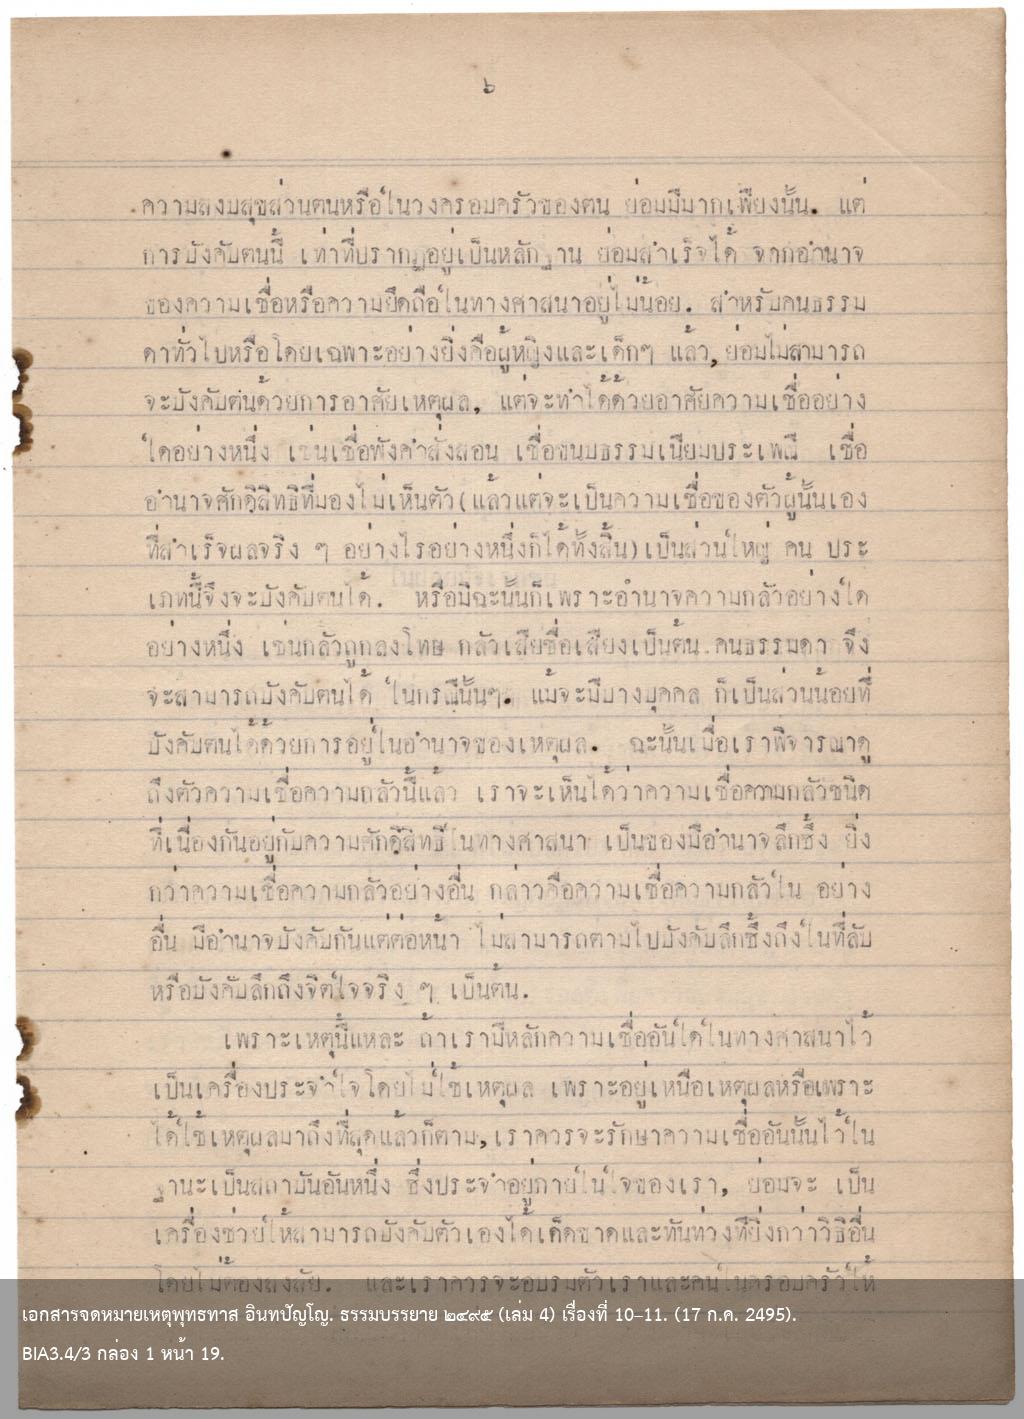 ๖
ความสงบสุขส่วนตนหรือในวงครอบครัวของตน ย่อมมีมากเพียงนั้น. แต่
การบังคับตนนี้ เท่าที่ปรากฏอยู่เป็นหลักฐาน ย่อมสำเร็จได้ จากอำนาจ
ของความเชื่อหรือความยึดถือในทางศาสนาอยู่ไม่น้อย. สำหรับคนธรรม
ดาทั่วไปหรือโดยเฉพาะอย่างยิ่งคือผู้หญิงและเด็กๆ แล้ว, ย่อมไม่สามารถ
จะบังคับตนด้วยการอาศัยเหตุผล, แต่จะทำได้ด้วยอาศัยความเชื่ออย่าง
ใดอย่างหนึ่ง เช่นเชื่อฟังคำสั่งสอน เชื่อขนบธรรมเนียมประเพณี เชื่อ
อำนาจศักดิ์สิทธิที่มองไม่เห็นตัว(แล้วแต่จะเป็นความเชื่อของตัวผู้นั้นเอง
ที่สำเร็จผลจริง ๆ อย่างไรอย่างหนึ่งก็ได้ทั้งสิ้น)เป็นส่วนใหญ่ คน ประ
เภทนี้จึงจะบังคับตนได้. หรือมิฉะนั้นก็เพราะอำนาจความกลัวอย่างใด
อย่างหนึ่ง เช่นกลัวถูกลงโทษ กลัวเสียชื่อเสียงเป็นต้น คนธรรมดา จึง
จะสามารถบังคับตนได้ ในกรณีนั้นๆ. แม้จะมีบางบุคคล ก็เป็นส่วนน้อยที่
บังคับตนได้ด้วยการอยู่ในอำนาจของเหตุผล. ฉะนั้นเมื่อเราพิจารณาดู
ถึงตัวความเชื่อความกลัวนี้แล้ว เราจะเห็นได้ว่าความเชื่อความกลัวชนิด
ที่เนื่องกันอยู่กับความศักดิ์สิทธิ์ในทางศาสนา เป็นของมีอำนาจลึกซึ้ง ยิ่ง
กว่าความเชื่อความกลัวอย่างอื่น กล่าวคือความเชื่อความกลัวใน อย่าง
อื่น มีอำนาจบังคับกันแต่ต่อหน้า ไม่สามารถตามไปบังคับลึกซึ้งถึงในที่ลับ
หรือบังคับลึกถึงจิตใจจริง ๆ เป็นต้น.
เพราะเหตุนี้แหละ ถ้าเรามีหลักความเชื่ออันใดในทางศาสนาไว้
เป็นเครื่องประจำใจโดยไม่ใช้เหตุผล เพราะอยู่เหนือเหตุผลหรือเพราะ
ได้ใช้เหตุผลมาถึงที่สุดแล้วก็ตาม, เราควรจะรักษาความเชื่ออันนั้นไว้ใน
ฐานะเป็นสถาบันอันหนึ่ง ซึ่งประจำอยู่ภายในใจของเรา, ย่อมจะ เป็น
เครื่องช่วยให้สามารถบังคับตัวเองได้เด็ดขาดและทันท่วงทียิ่งกว่าวิธีอื่น
โดยไม่ต้องสงสัย. และเราควรจะอบรมตัวเราและคนในครอบครัวให้
เอกสารจดหมายเหตุพุทธทาส อินทปัญโญ. ธรรมบรรยาย ๒๔๙๕ (เล่ม 4) เรื่องที่ 10–11. (17 ก.ค. 2495).
BIA3.4/3 กล่อง 1 หน้า 19.